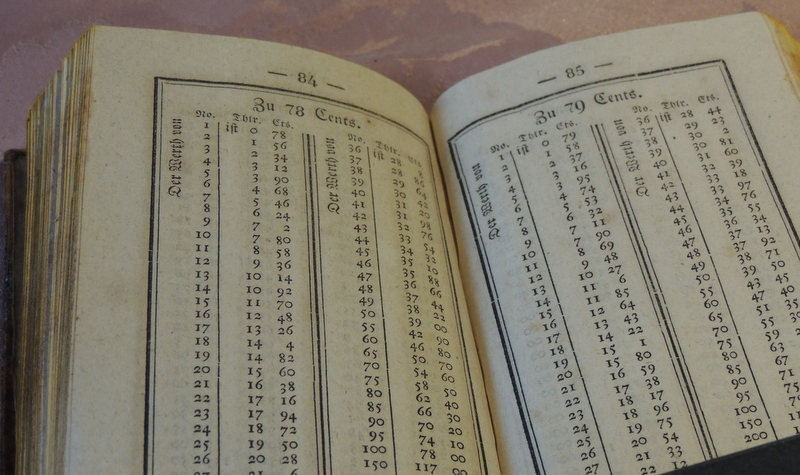 — 84 —
Zu 78 Cents.
Der Werth von
No. Thlr. Cts.
1 ist 0 78
2 1 56
3 2 34
4 3 12
5 3 90
6 4 68
7 5 46
8 6 24
9 7 2
10 7 80
11 8 58
12 9 36
13 10 14
14 10 92
15 11 70
16 12 48
17 13 26
18 14 4
19 14 82
20 15 60
21 16 38
22 17 16
23 17 94
24 18 72
25 19 50
26 20 28
27 21 6
Der Werth von
No. Thlr. Cts.
36 ist 28 8
37 28 86
38 29 64
39 30 42
40 31 20
41 31 98
42 32 76
43 33 54
44 34 32
45 35 10
46 35 88
47 36 66
48 37 44
49 38 22
50 39 00
55 42 90
60 46 80
65 50 70
70 54 60
75 58 50
80 62 40
85 66 30
90 70 20
95 74 10
100 78 00
150 117 00
— 85 —
Zu 79 Cents.
Der Werth von
No. Thlr. Cts.
1 ist 0 79
2 1 58
3 2 37
4 3 16
5 3 95
6 4 74
7 5 53
8 6 32
9 7 11
10 7 90
11 8 69
12 9 48
13 10 27
14 11 6
15 11 85
16 12 64
17 13 43
18 14 22
19 15 1
20 15 80
21 16 59
22 17 38
23 18 17
24 18 96
25 19 75
26 20 54
27 21 33
Der Werth von
No. Thlr. Cts.
36 ist 28 44
37 29 23
38 30 2
39 30 81
40 31 60
41 32 39
42 33 18
43 33 97
44 34 76
45 35 55
46 36 34
47 37 13
48 37 92
49 38 71
50 39 50
55 43 45
60 47 40
65 51 35
70 55 30
75 59
80 63
85 67
90 71
95 75
100 79
150
200